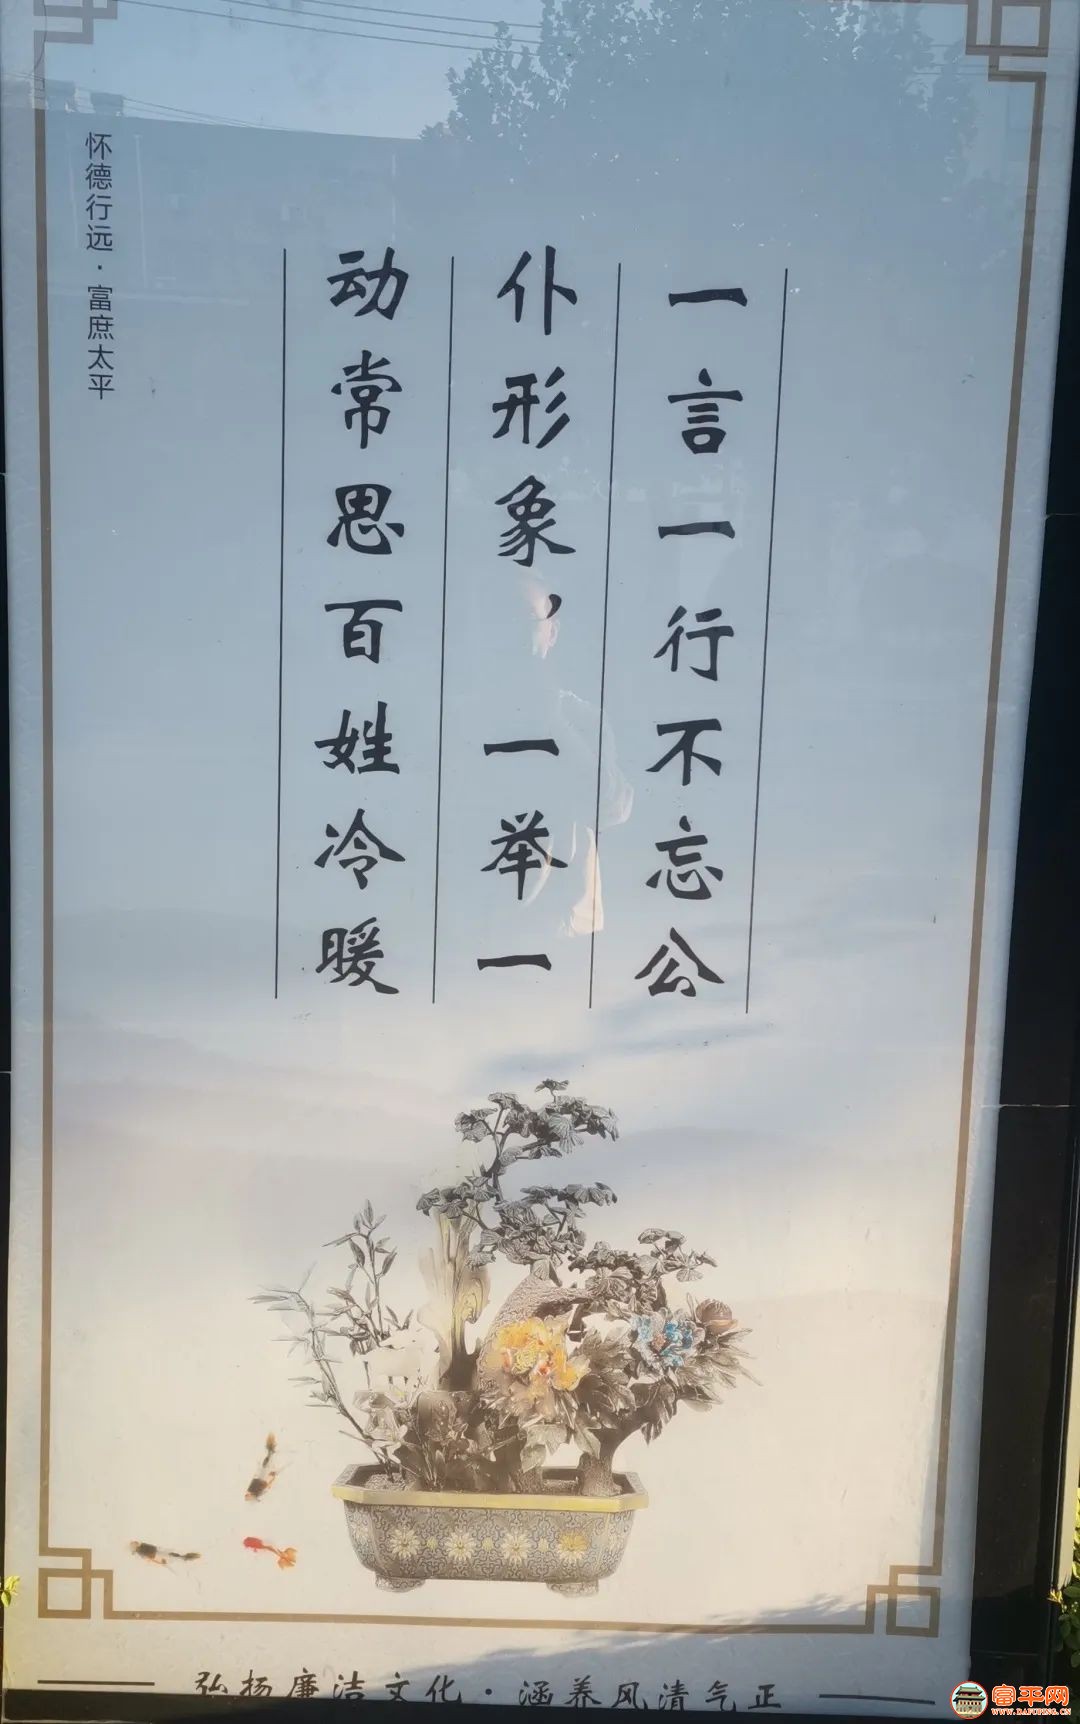 一言一行不忘公
仆形象，一举一
动常思百姓冷暖
怀德行远·富庶太平
弘扬廉洁文化·涵养风清气正
富平网
WWW.DAFUPING.CN